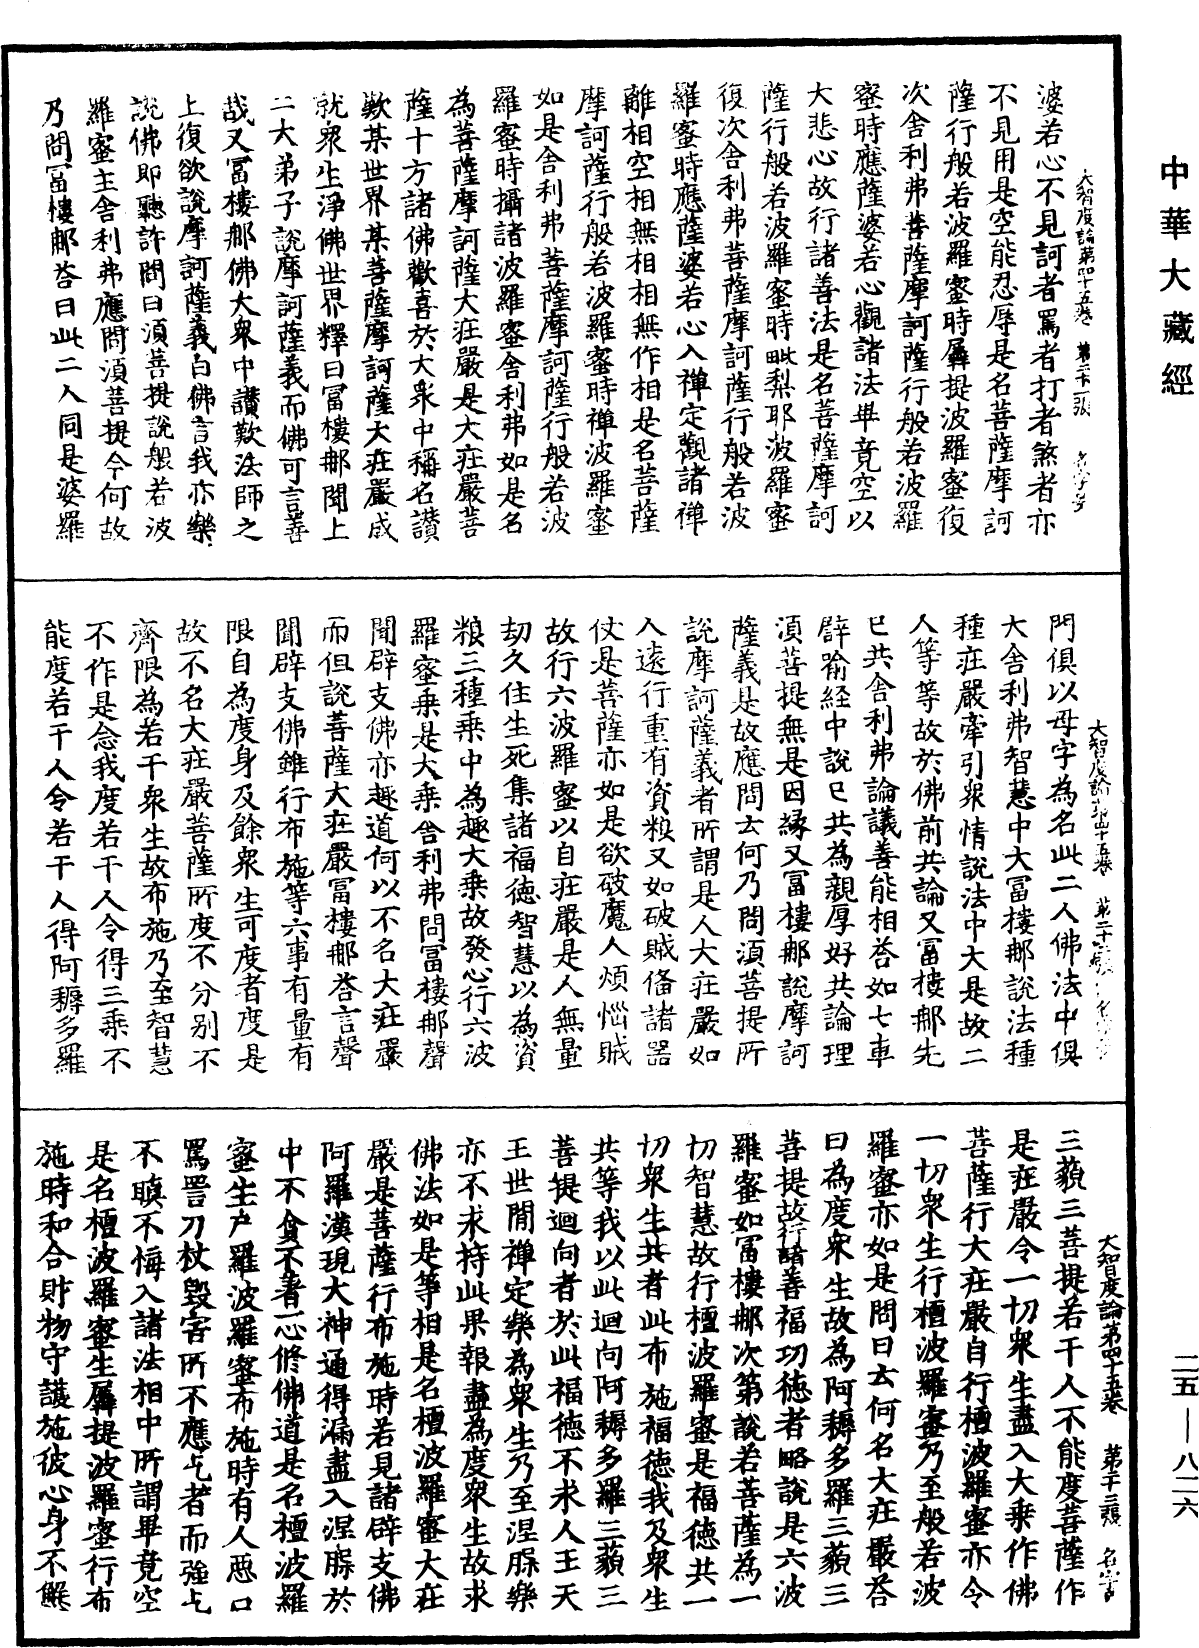 中華大藏經
大智度論第四十五卷　第二十一張　名字号
婆若心不見訶者罵者打者煞者亦
不見用是空能忍辱是名菩薩摩訶
薩行般若波羅蜜時羼提波羅蜜復
次舍利弗菩薩摩訶薩行般若波羅
蜜時應薩婆若心觀諸法畢竟空以
大悲心故行諸善法是名菩薩摩訶
薩行般若波羅蜜時毗梨耶波羅蜜
復次舍利弗菩薩摩訶薩行般若波
羅蜜時應薩婆若心入禪定觀諸禪
離相空相無相相無作相是名菩薩
摩訶薩行般若波羅蜜時禪波羅蜜
如是舍利弗菩薩摩訶薩行般若波
羅蜜時攝諸波羅蜜舍利弗如是名
為菩薩摩訶薩大莊嚴是大莊嚴菩
薩十方諸佛歡喜於大衆中稱名讚
歎某世界某菩薩摩訶薩大莊嚴成
就衆生淨佛世界釋曰冨樓那聞上
二大弟子說摩訶薩義而佛可言善
哉又冨樓那佛大衆中讚歎法師之
上復欲說摩訶薩義白佛言我亦樂
說佛即聽許問曰湏菩提說般若波
羅蜜主舍利弗應問湏菩提今何故
乃問冨樓那荅曰此二人同是婆羅
大智度論第四十五卷　第二十二張　名字号
門俱以母字為名此二人佛法中俱
大舍利弗智慧中大冨樓那說法種
種莊嚴牽引衆情說法中大是故二
人等等故於佛前共論又冨樓那先
已共舍利弗論議善能相荅如七車
譬喻經中說已共為親厚好共論理
湏菩提無是因緣又冨樓那說摩訶
薩義是故應問云何乃問湏菩提所
說摩訶薩義者所謂是人大莊嚴如
人遠行重有資粮又如破賊俻諸器
仗是菩薩亦如是欲破魔人煩惱賊
故行六波羅蜜以自莊嚴是人無量
劫久住生死集諸福德智慧以為資
粮三種乗中為趣大乗故發心行六波
羅蜜乗是大乗舍利弗問冨樓那聲
聞辟支佛亦趣道何以不名大莊嚴
而但說菩薩大莊嚴冨樓那荅言聲
聞辟支佛雖行布施等六事有量有
限自為度身及餘衆生可度者度是
故不名大莊嚴菩薩所度不分别不
齊限為若干衆生故布施乃至智慧
不作是念我度若干人令得三乗不
能度若干人令若干人得阿耨多羅
大智度論第四十五卷　第二十三張　名字号
三藐三菩提若干人不能度菩薩作
是莊嚴令一切衆生盡入大乗作佛
菩薩行大莊嚴自行檀波羅蜜亦令
一切衆生行檀波羅蜜乃至般若波
羅蜜亦如是問曰云何名大莊嚴荅
曰為度衆生故為阿耨多羅三藐三
菩提故行諸善福功德者略說是六波
羅蜜如冨樓那次第說若菩薩為一
切智慧故行檀波羅蜜是福德共一
切衆生共者此布施福德我及衆生
共等我以此迴向阿耨多羅三藐三
菩提迴向者於此福德不求人王天
王世閒禪定樂為衆生乃至涅槃樂
亦不求持此果報盡為度衆生故求
佛法如是等相是名檀波羅蜜大莊
嚴是菩薩行布施時若見諸辟支佛
阿羅漢現大神通得漏盡入涅槃於
中不貪不著一心修佛道是名檀波羅
蜜生尸羅波羅蜜布施時有人惡口
罵詈刀杖毀害所不應乞者而強乞
不瞋不悔入諸法相中所謂畢竟空
是名檀波羅蜜生羼提波羅蜜行布
施時和合財物守護施彼心身不懈
二五—八二六